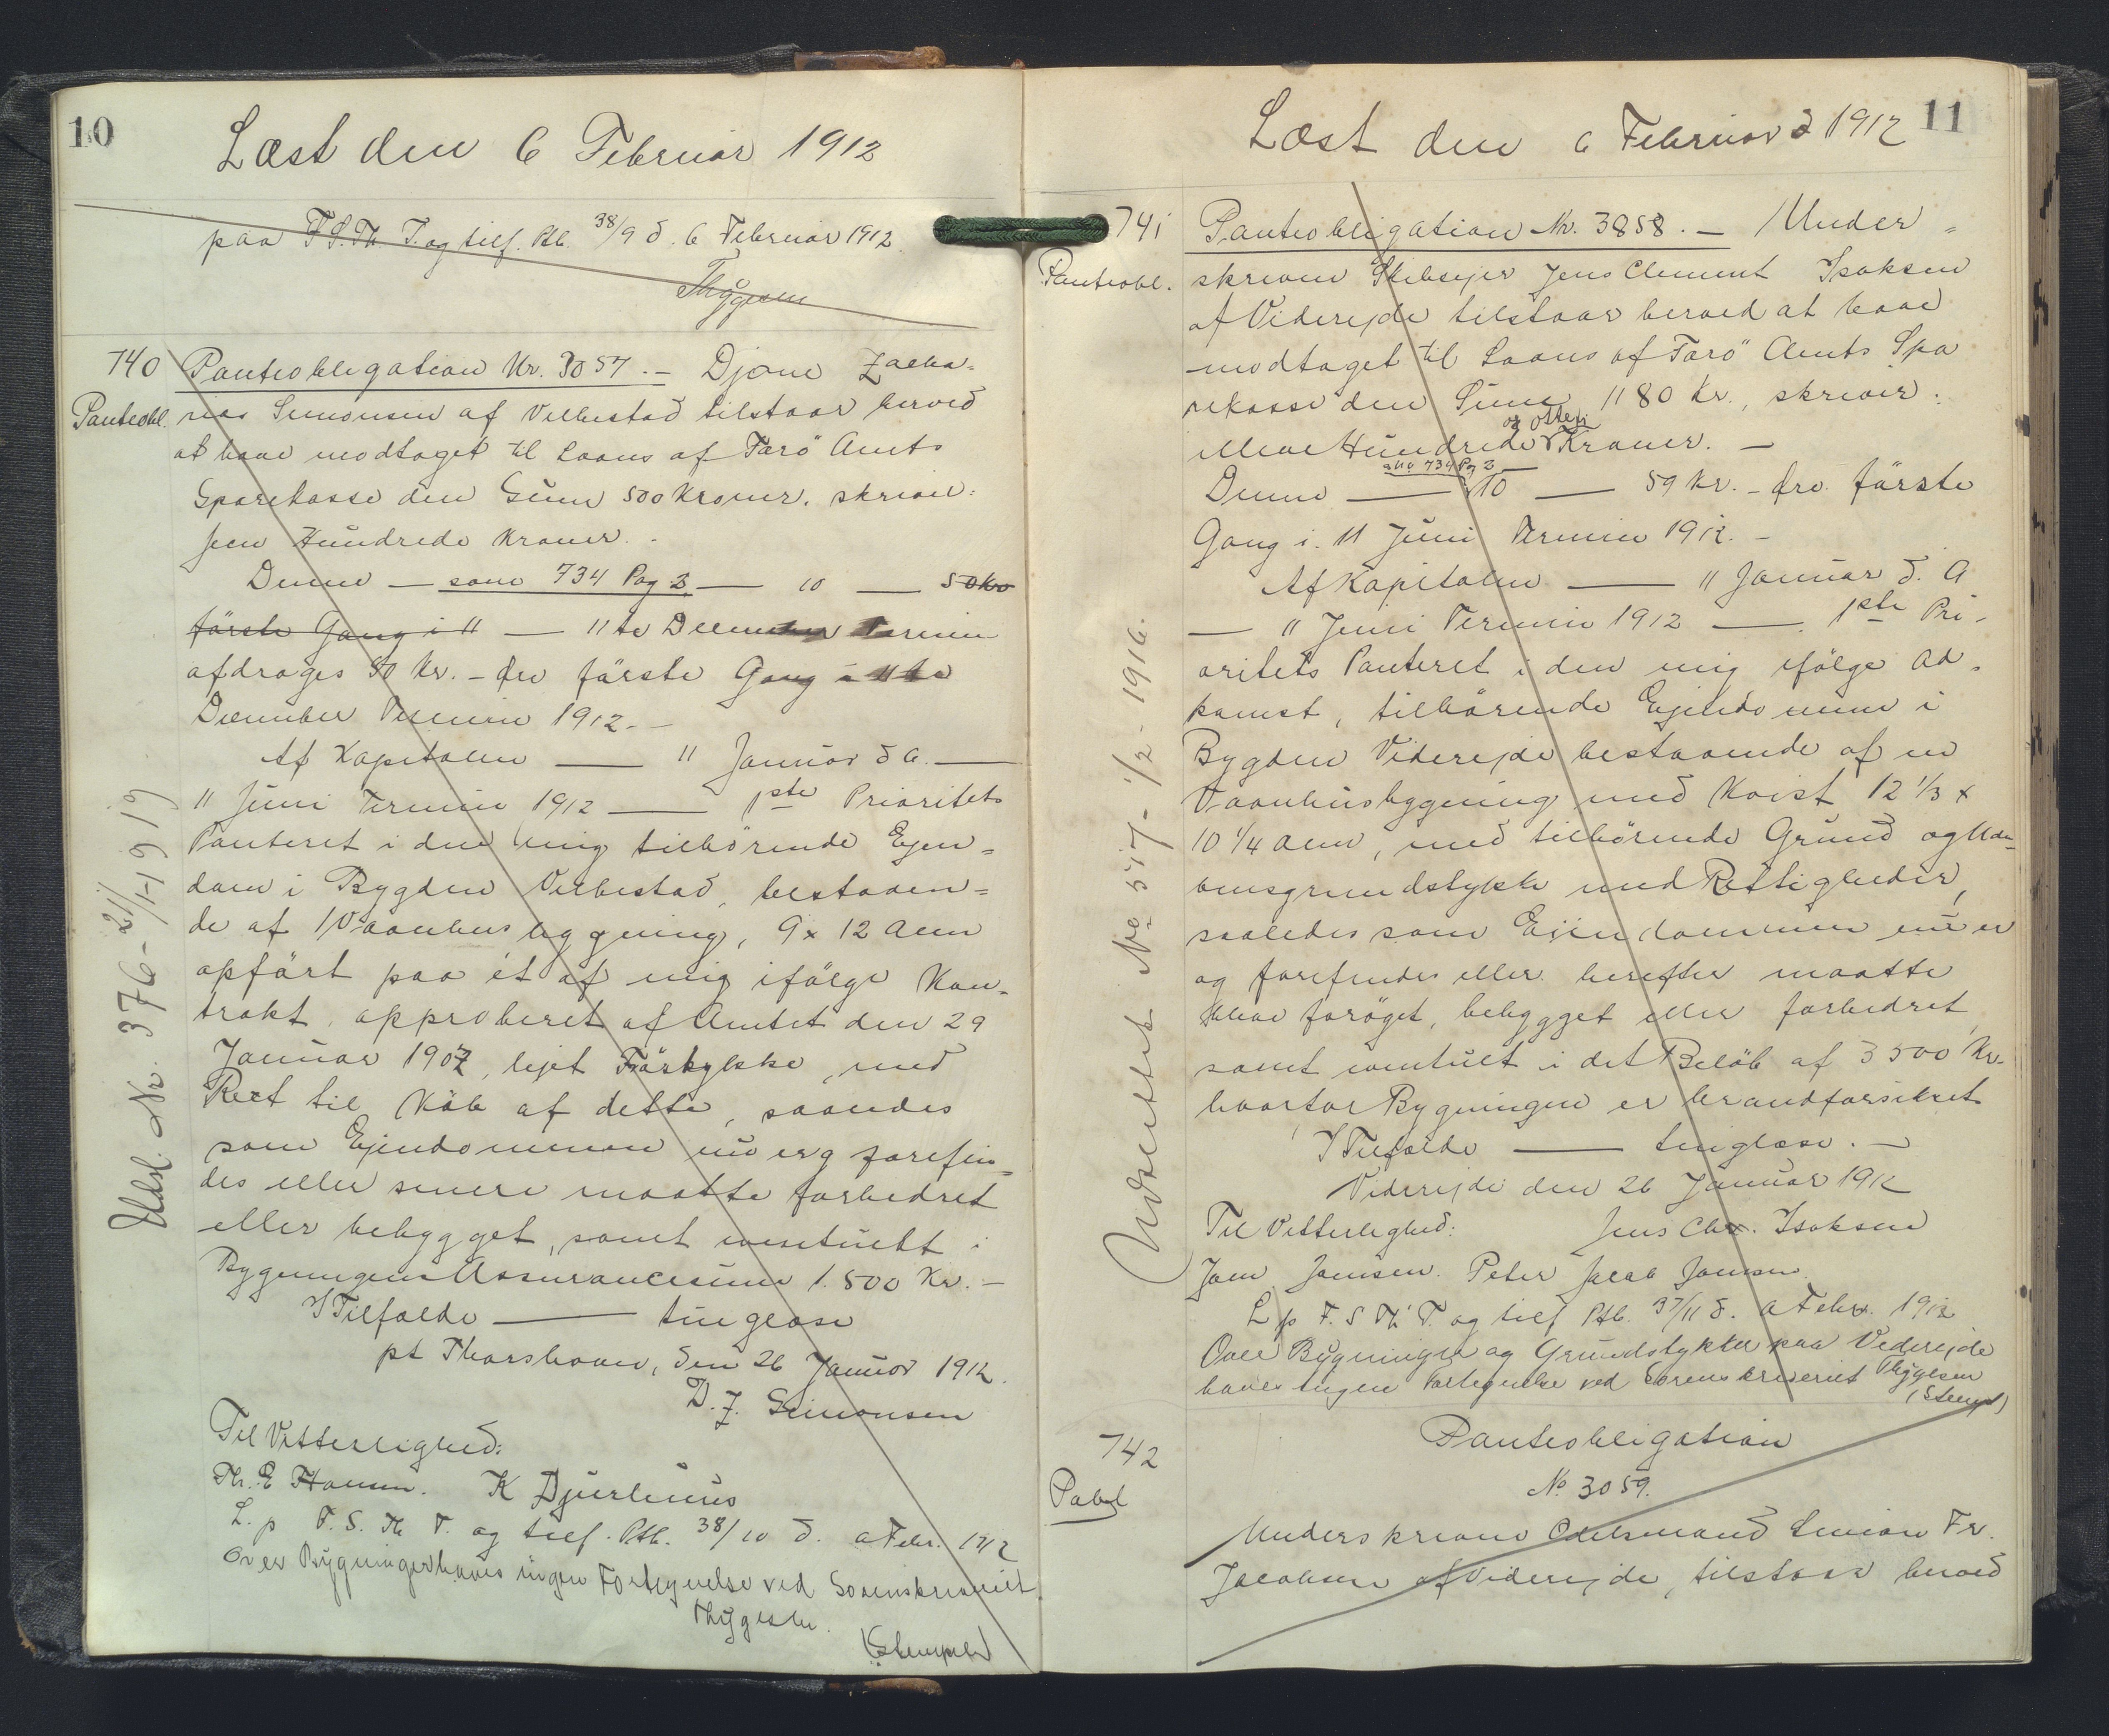 10
Læst den 6 Februar 1912
paa F.S. Th. T. og tilf. Ptb. 38/9 d. 6 Februar 1912.
Thygesen
740
Panteobl.
Panteobligation Nr. 3057. – Djone Zacha-
rias Simonsen af Velbestad tilstaar herved
at have modtaget til Laans af Farö Amts
Sparekasse den Sum 500 Kroner, skriver:
fem Hundrede Kroner. -
Denne — som 734 Pag 3 — 10 — 50 kr
første Gang i 11 — 11te December Termin
afdrages 50 Kr. – før første Gang i 11te
December Termin 1912. –
Af Kapitalen — 11 Januar d A. —
11 Juni Termin 1912 — 1ste Prioritets
Panteret i den mig tilhörende Ejen=
dom i Bygden Velbestad, bestaaen=
de af 1 Vaanhusbygning, 9 x 12 Alen
opfört paa ét af mig ifölge Kon-
trakt, approberet af Amtet den 29
Januar 1907, lejet Jordstykke, med
Ret til Köb af dette, saaledes
som Ejendommen nu er og forefin=
des eller senere maatte forbedret
eller bebygget, samt eventuelt i
Bygningens Assurancesum 1.500 Kr. –
I Tilfælde — tinglæse
pt Thorshavn, den 26 Januar 1912.
D. Z. Simonsen
Til Vitterlighed:
Th. E Hansen. K Djurhuus
L. p F. S. Th T. og tilf. Ptb. 38/10 d. 6 Febr. 1912
Over Bygninger haves ingen Fortegnelse ved Sorenskriveriet
Thygesen.
(Stempel)
Udsl. Nr. 376 - 21/1 1919
11
Læst den 6 Februar 1912
741
Panteobl.
Panteobligation Nr. 3858. – Under=
skreven Skibsejer Jens Clement Isaksen
af Viderejde tilstaar herved at have
modtaget til Laans af Farö Amts Spa
rekasse den Sum 1180 Kr., skriver:
elleve Hundrede og otteti Kroner. –
Denne — som 734 Pg 3 — 10 — 59 Kr. – før første
Gang i 11 Juni Termin 1912. –
Af Kapitalen — 11 Januar d. A
— 11 Juni Termin 1912 — 1ste Pri-
oritets Panteret i den mig ifölge Ad-
komst, tilhörende Ejendomme i
Bygden Viderejde bestaaende af en
Vaanhusbygning med Kvist 12 1/3 x
10 1/4 Alen, med tilhörende Grund og Ude
omsgrundstykke med Rettigheder,
saaledes som Ejendommen nu er
og forefindes eller herefter maatte
blive foröget, bebygget eller forbedret,
samt eventuelt i det Belöb af 3500 Kr.
hvorfor Bygningen er brandforsikret
I Tilfælde — tinglæse. –
Viderejde den 26 Januar 1912
Til Vitterlighed: Jens Clem. Isaksen
Joen Joensen. Peter Jacob Joensen
L p F. S Th T. og tilf Ptb. 37/11 d. 6 Febr. 1912
Over Bygninger og Grundstykker paa Viderejde
haves ingen Fortegnelse ved Sorenskriveriet Thygesen
(Stempel)
742
Pobl
Panteobligation
No 3059.
Underskreven Odelsmand Simon Fr.
Jacobsen af Viderejde, tilstaar herved
Udslettet No 517 - 1/2 - 1916.